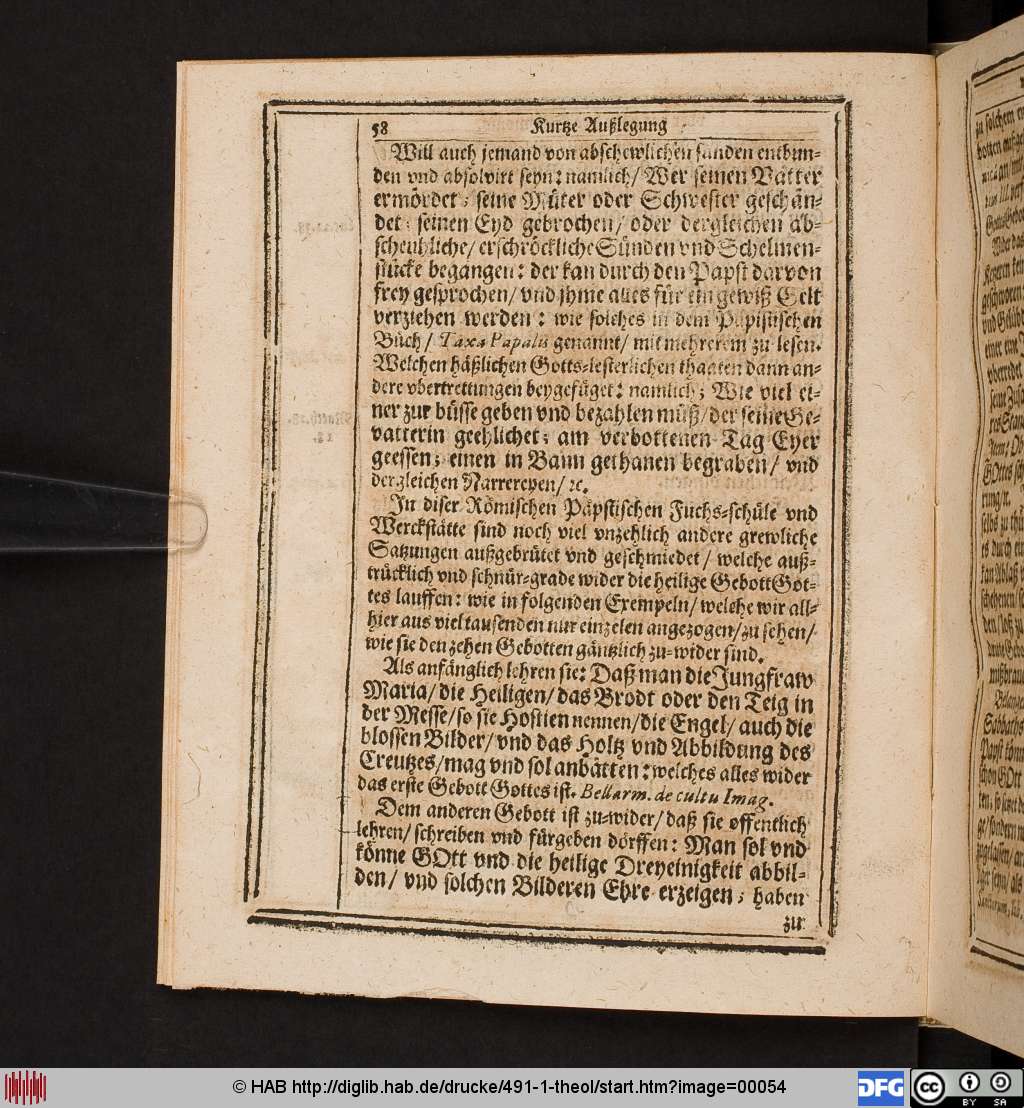 58 Kurtze Außlegung
Will auch jemand von abschewlichen sünden entbun-
den vnd absolvirt seyn: namlich/ Wer seinen Vatter
ermördet; seine Mûter oder Schwester geschän-
det; seinen Eyd gebrochen/ oder dergleichen ab-
scheuhliche/ erschröckliche Sünden vnd Schelmen-
stücke begangen: der kan durch den Papst darvon
frey gesprochen/ vnd jhme alles für ein gewiß Gelt
verziehen werden: wie solches in dem Päpistischen
Bûch/ Taxa Papalis genannt/ mit mehrerem zu lesen.
Welchen häßlichen Gotts-lesterlichen thaaten dann an-
dere vbertrettungen beygefüget: namlich; Wie viel ei-
ner zur bûsse geben vnd bezahlen mûß/ der seine Ge-
vatterin geehlichet; am verbottenen Tag Eyer
geessen; einen in Bann gethanen begraben/ vnd
dergleichen Narrereyen/ ꝛc.
In diser Römischen Päpstischen Fuchs-schûle vnd
Werckstätte sind noch viel vnzehlich andere grewliche
Satzungen außgebrütet vnd geschmiedet/ welche auß-
trücklich vnd schnûr-grade wider die heilige Gebott Got-
tes lauffen: wie in folgenden Exempeln/ welche wir all-
hier aus viel tausenden nur einzelen angezogen/ zu sehen/
wie sie den zehen Gebotten gäntzlich zu-wider sind.
Als anfänglich lehren sie: Daß man die Jungfraw
Maria/ die Heiligen/ das Brodt oder den Teig in
der Messe/ so sie Hostien nennen/ die Engel/ auch die
blossen Bilder/ vnd das Holtz vnd Abbildung des
Creutzes/ mag vnd sol anbätten: welches alles wider
das erste Gebott Gottes ist. Bellarm. de cultu Imag.
Dem anderen Gebott ist zu-wider/ daß sie offentlich
lehren/ schreiben vnd fürgeben dörffen: Man sol vnd
könne GOtt vnd die heilige Dreyeinigkeit abbil-
den/ vnd solchen Bilderen Ehre erzeigen; haben
zu
© HAB http://diglib.hab.de/drucke/491-1-theol/start.htm?image=00054
DFG
cc BY SA